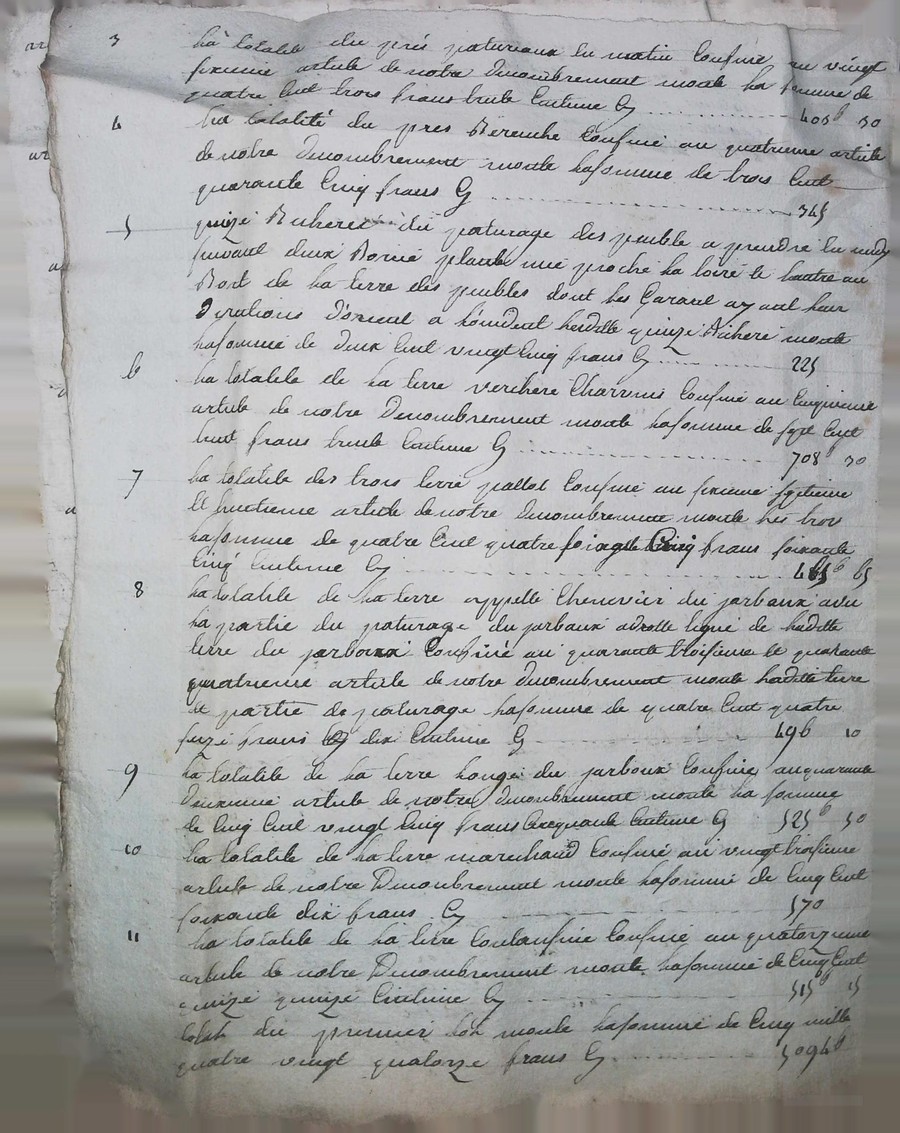 3 ha totalite du prés paturiaux du matin Confiné au vingt
sixieme article de notre denombrement monte ha somme de
quatre Cent trois frans trente Centime Cy 403 30
4 ha totalité du pres Bereuche Confiné au quatrieme article
de notre denombrement monte hasomme de trois Cent
quarante Cinq frans Cy 345
5 quize Bicheré du paturage des peuble a prendre
suivant deux Borné plante une proche ha loire le hautre au
Bort de ha terre des peubles dont hes Garant ayant heur
Dyrations d'orient a hóxident hesditte quinze Bicheré monte
hasomme de deux Cent vingt Cinq frans Cy 225
6 ha totalite de ha terre verchere Charrnis Confiné au Cinquieme
article de notre denombrement monte hasomme de sept Cent
huit frans trente Centime Cy 708 30
7 ha totalite des trois terre pallot Confiné au sixieme septieme
et huitieme article de notre denombrement monte hes trois
hasomme de quatre Cent quatre soixante Cinq frans soixante
Cinq Centime Cy 465 65
8 ha totalite de ha terre appellé Chenevier du jarbaux avec
ha partie du paturage du jarbaux adroitte ligne de haditte
terre du jarbaux Confiné au quarante troisieme et quarante
quatrieme article de notre denombrement monte haditte terre
et partie de paturage hasomme de quatre Cent quatre
seizé frans dix Centime Cy 496 10
9 ha totalite de ha terre hongé du jarboux Confiné auquarante
deuxieme article de notre denombrement monte ha somme
de Cinq Cent vingt Cinq frans Cinquante Centime Cy 525 50
10 ha totalite de ha terre marechaud Confiné au vingt troisieme
article de notre Denombrement monte hasomme de Cinq Cent
soixante dix frans Cy 570
11 ha totalite de ha terre Confiné au quatorzieme
article de notre Denombrement monte hasomme de Cinq Cent
quinze quinze Centime Cy 515 15
totale du premier lot monte hasomme de Cinq mille
quatre vingt quatorze frans Cy 5094